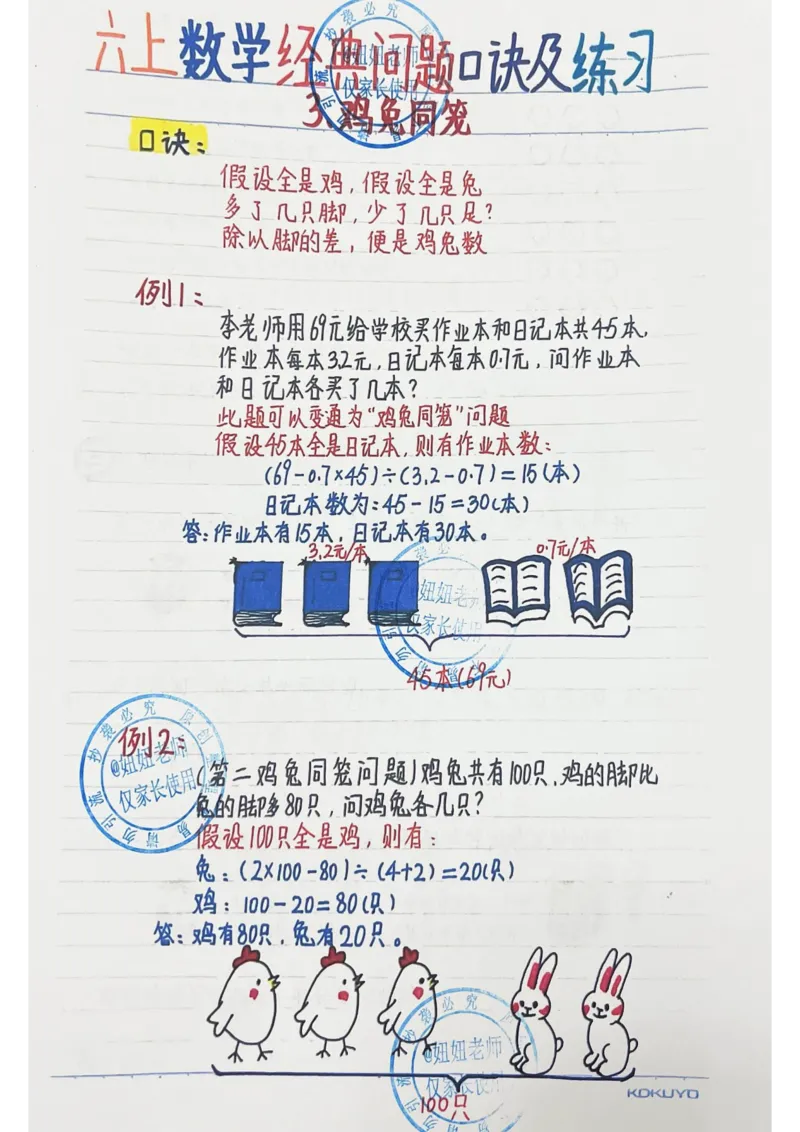 六上数学经典问题口诀及练习
3、鸡兔同笼
口诀：
假设全是鸡，假设全是兔
多了几只脚，少了几只足？
除以脚的差，便是鸡兔数
例1：
李老师用69元给学校买作业本和日记本共45本，
作业本每本3.2元，日记本每本0.7元，问作业本
和日记本各买了几本？
此题可以变通为“鸡兔同笼”问题
假设45本全是日记本，则有作业本数：
(69-0.7×45)÷(3.2-0.7)=15(本)
日记本数为：45-15=30(本)
答：作业本有15本，日记本有30本。
3.2元/本
0.7元/本
45本(69元)
例2：
(第二鸡兔同笼问题)鸡兔共有100只，鸡的脚比
兔的脚多80只，问鸡兔各几只？
假设100只全是鸡，则有：
兔：(2×100-80)÷(4+2)=20(只)
鸡：100-20=80(只)
答：鸡有80只，兔有20只。
100只
KOKUYO
@妞妞老师
仅家长使用